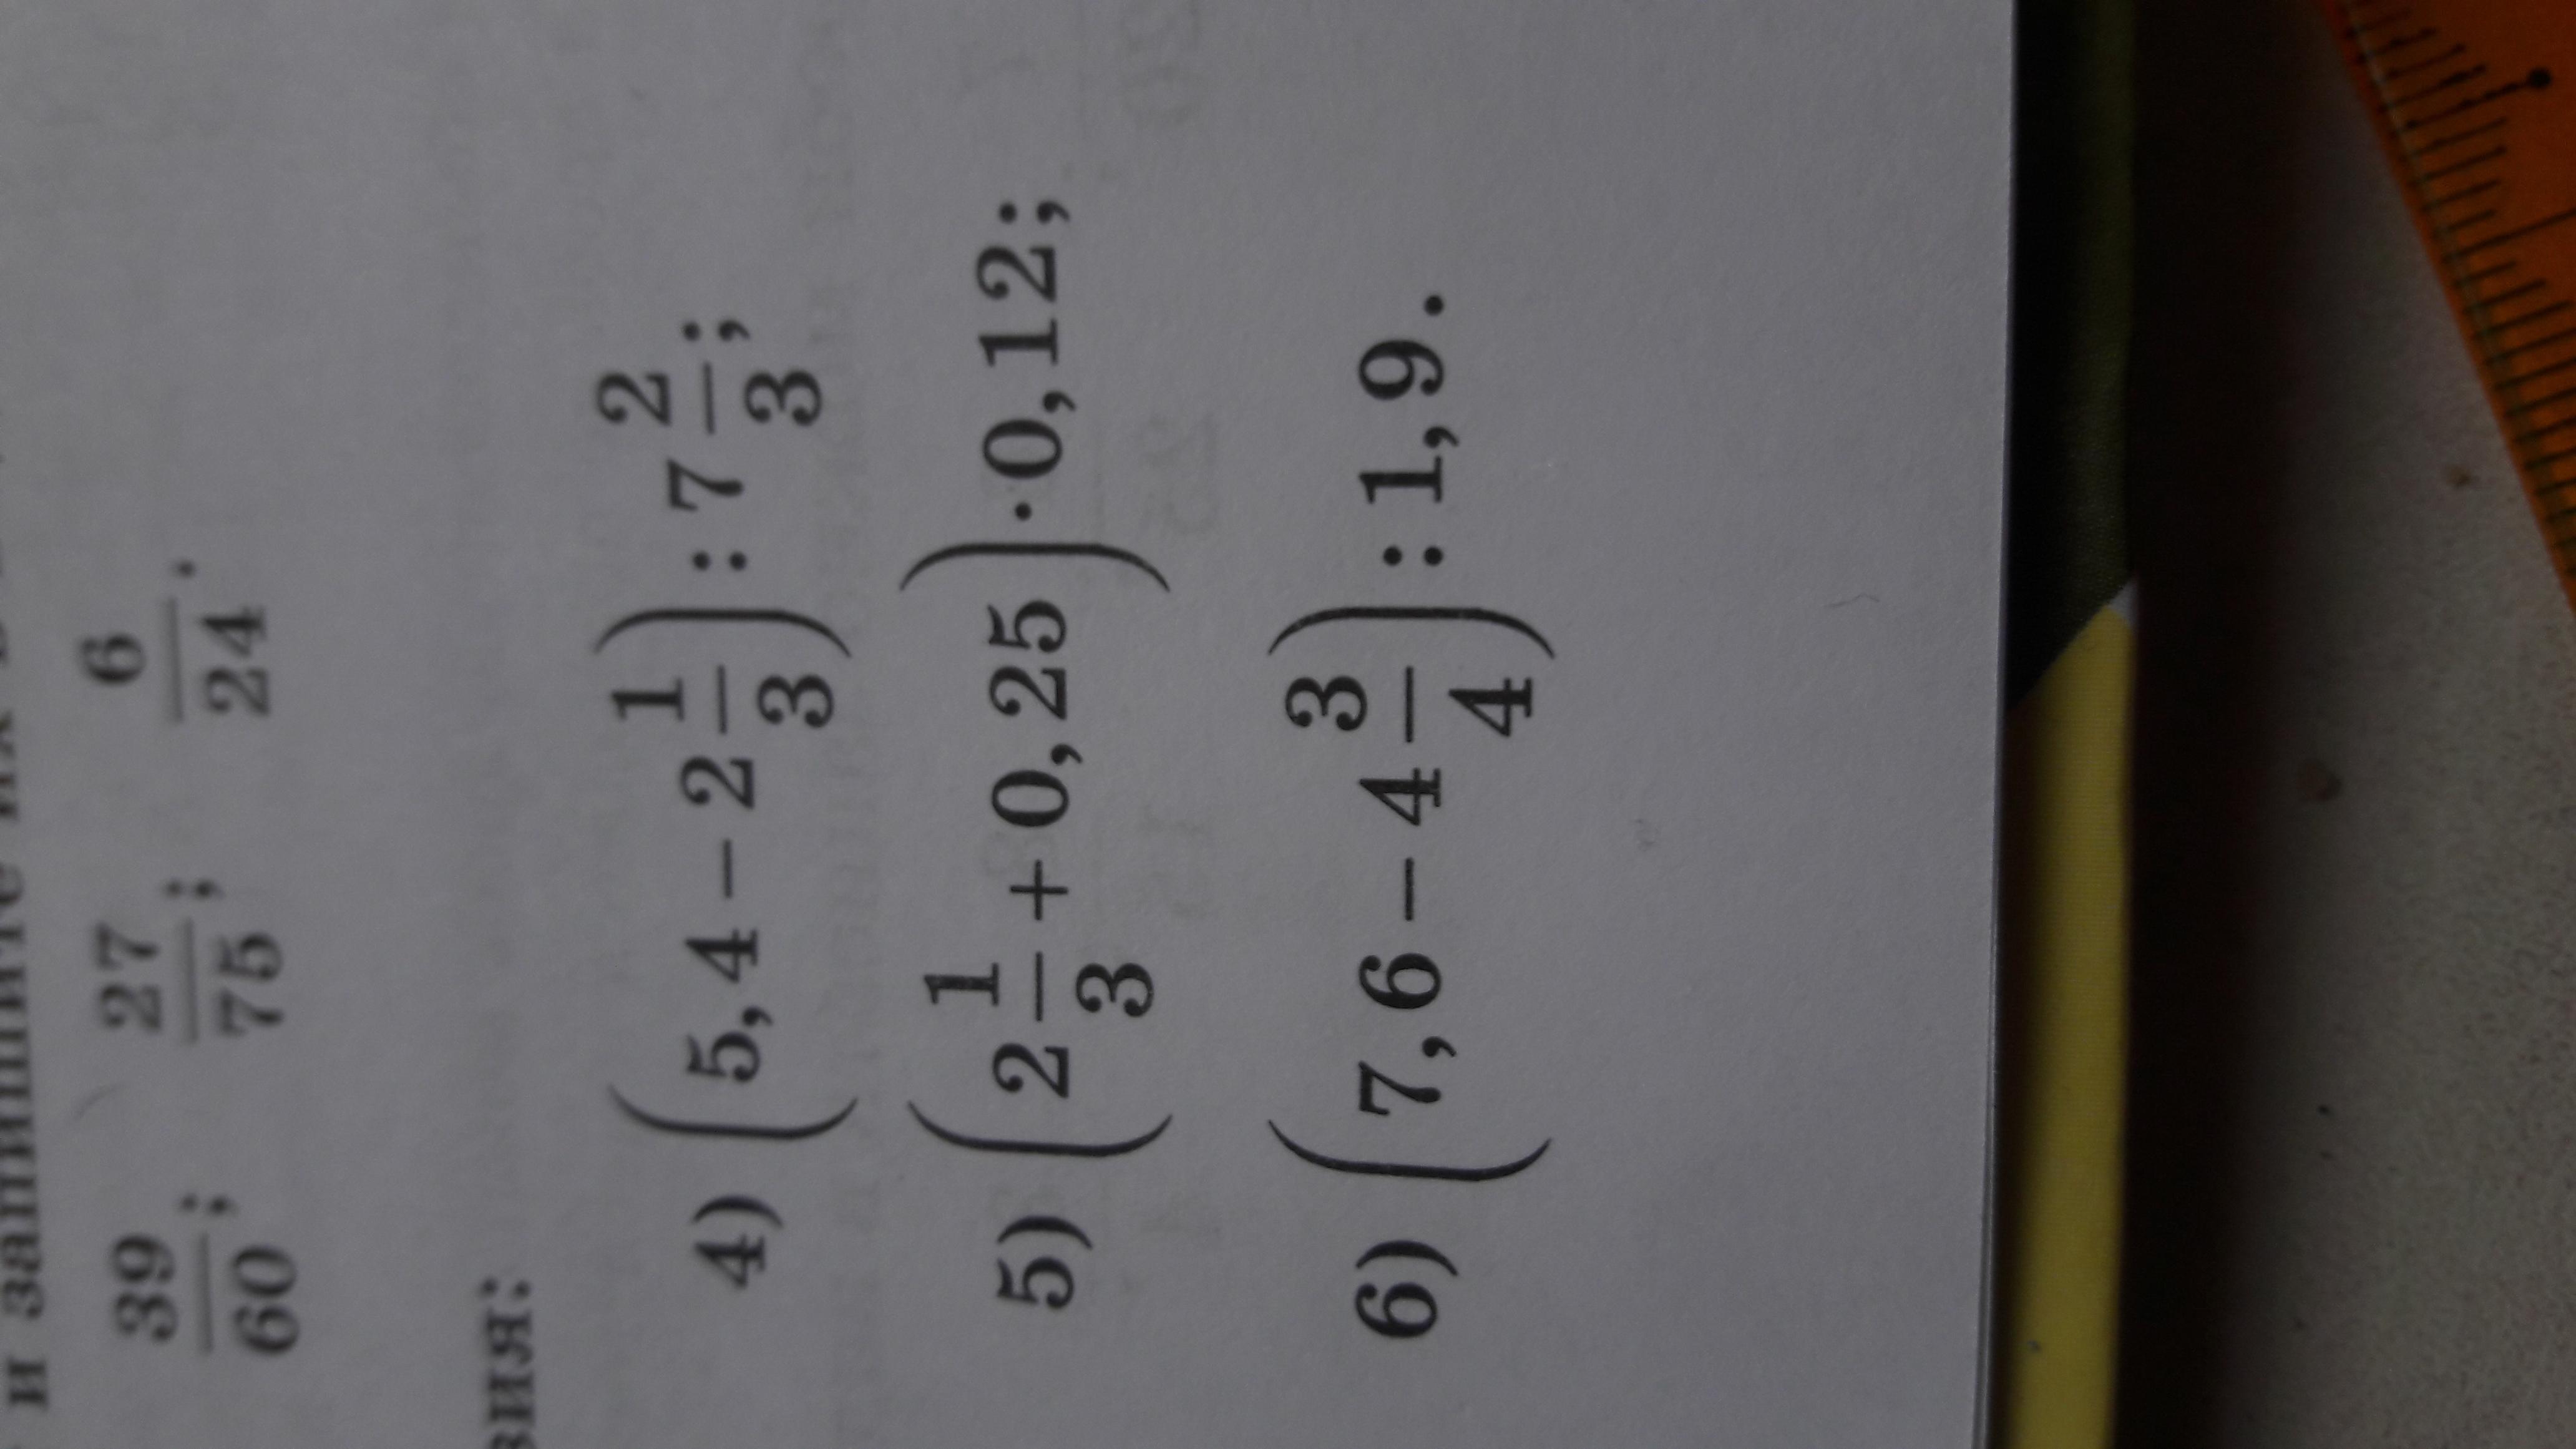 и запишите их
39/60; 27/75; 6/24.
вия:
4) (5,4 − 2 1/3) : 7 2/3;
5) (2 1/3 + 0,25) · 0,12;
6) (7,6 − 4 3/4) : 1,9.